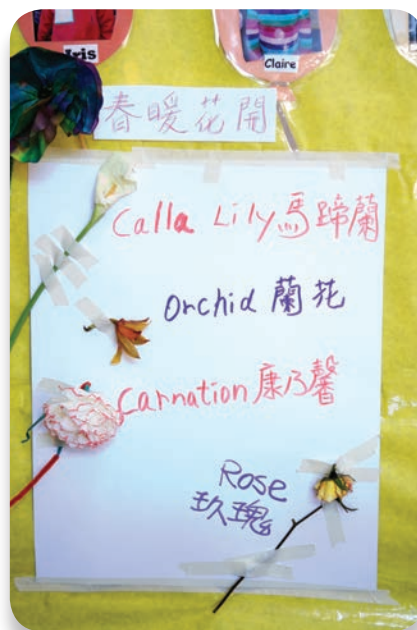 Iris
Claire
春暖花開
Calla Lily 馬蹄蘭
Orchid 蘭花
Carnation 康乃馨
Rose
玫瑰